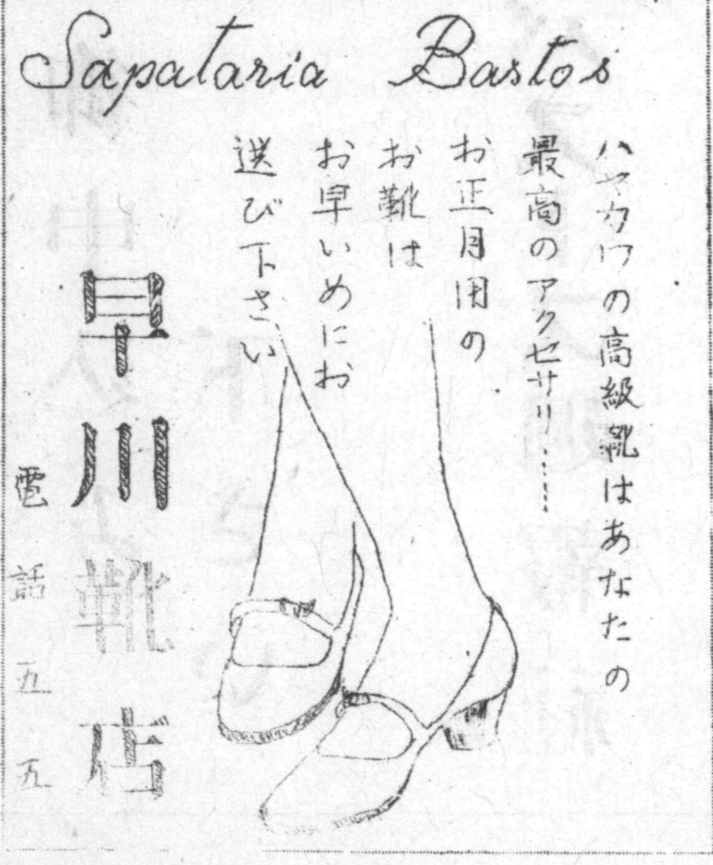 Sapataria Bastos
ハヤカワの高級靴はあなたの
最高のアクセサリー……
お正月用の
お靴は
お早いめにお
選び下さい
早川靴店
電話五五